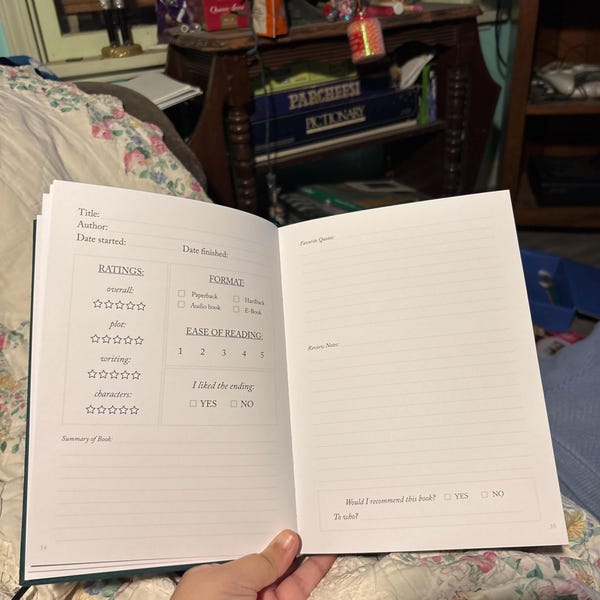 PARCHEESI
PICTIONARY
Title:
Author:
Date started:
Date finished:
RATINGS:
overall:
plot:
writing:
characters:
FORMAT:
Paperback
Hardback
Audio book
E-Book
EASE OF READING:
1 2 3 4 5
I liked the ending:
YES NO
Summary of Book:
34
Favorite Quotes:
Review Notes:
Would I recommend this book? YES NO
To who?